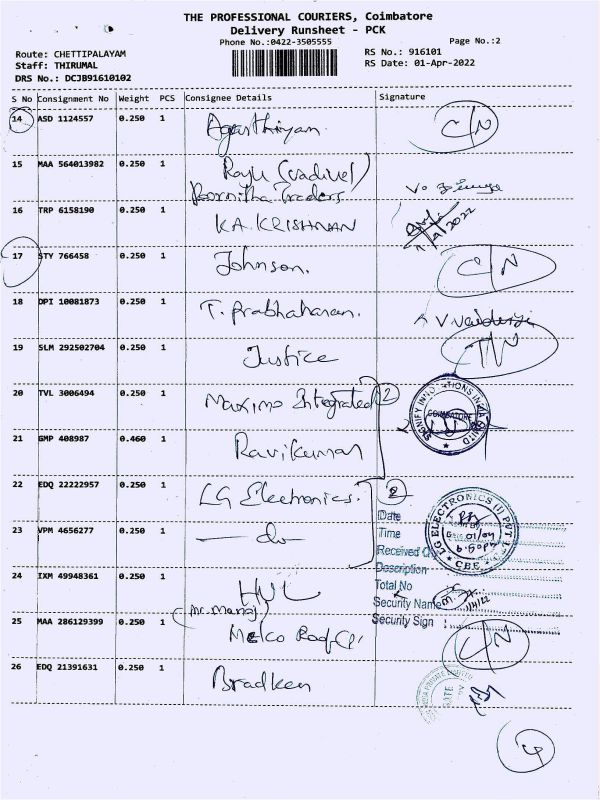 THE PROFESSIONAL COURIERS, Coimbatore
Delivery Runsheet - PCK
Phone No.:0422-3505555
Page No.:2
Route: CHETTIPALAYAM
RS No.: 916101
Staff: THIRUMAL
RS Date: 01-Apr-2022
DRS No.: DCJB91610102
S No Consignment No Weight PCS Consignee Details Signature
14 ASD 1124557 0.250 1 Agasthiyan C/N
15 MAA 564013982 0.250 1 Raju (vadivel)
Poornitha Traders
16 TRP 6158190 0.250 1 K.A. KRISHNAN
17 STY 766458 0.250 1 Johnson. C/N
18 DPI 10081873 0.250 1 T. Prabhaharan.
19 SLM 292502704 0.250 1 Justice
20 TVL 3006494 0.250 1 Maximo Integrated 2
SIGNIFY INNOVATIONS INDIA LIMITED
COIMBATORE
21 GMP 408987 0.460 1 Ravikumar
22 EDQ 22222957 0.250 1 LG Electronics. 2
LG ELECTRONICS (I) PVT
CBE
Date
23 VPM 4656277 0.250 1 — do —
Time
01/04
Received
6.50pm
Description
24 IXM 49948361 0.250 1 HUL
Total No
Security Name
(Mr. Manoj)
25 MAA 286129399 0.250 1 Melco Roof
Security Sign :
C/N
26 EDQ 21391631 0.250 1 Bradken
INDIA PRIVATE LIMITED
DATE